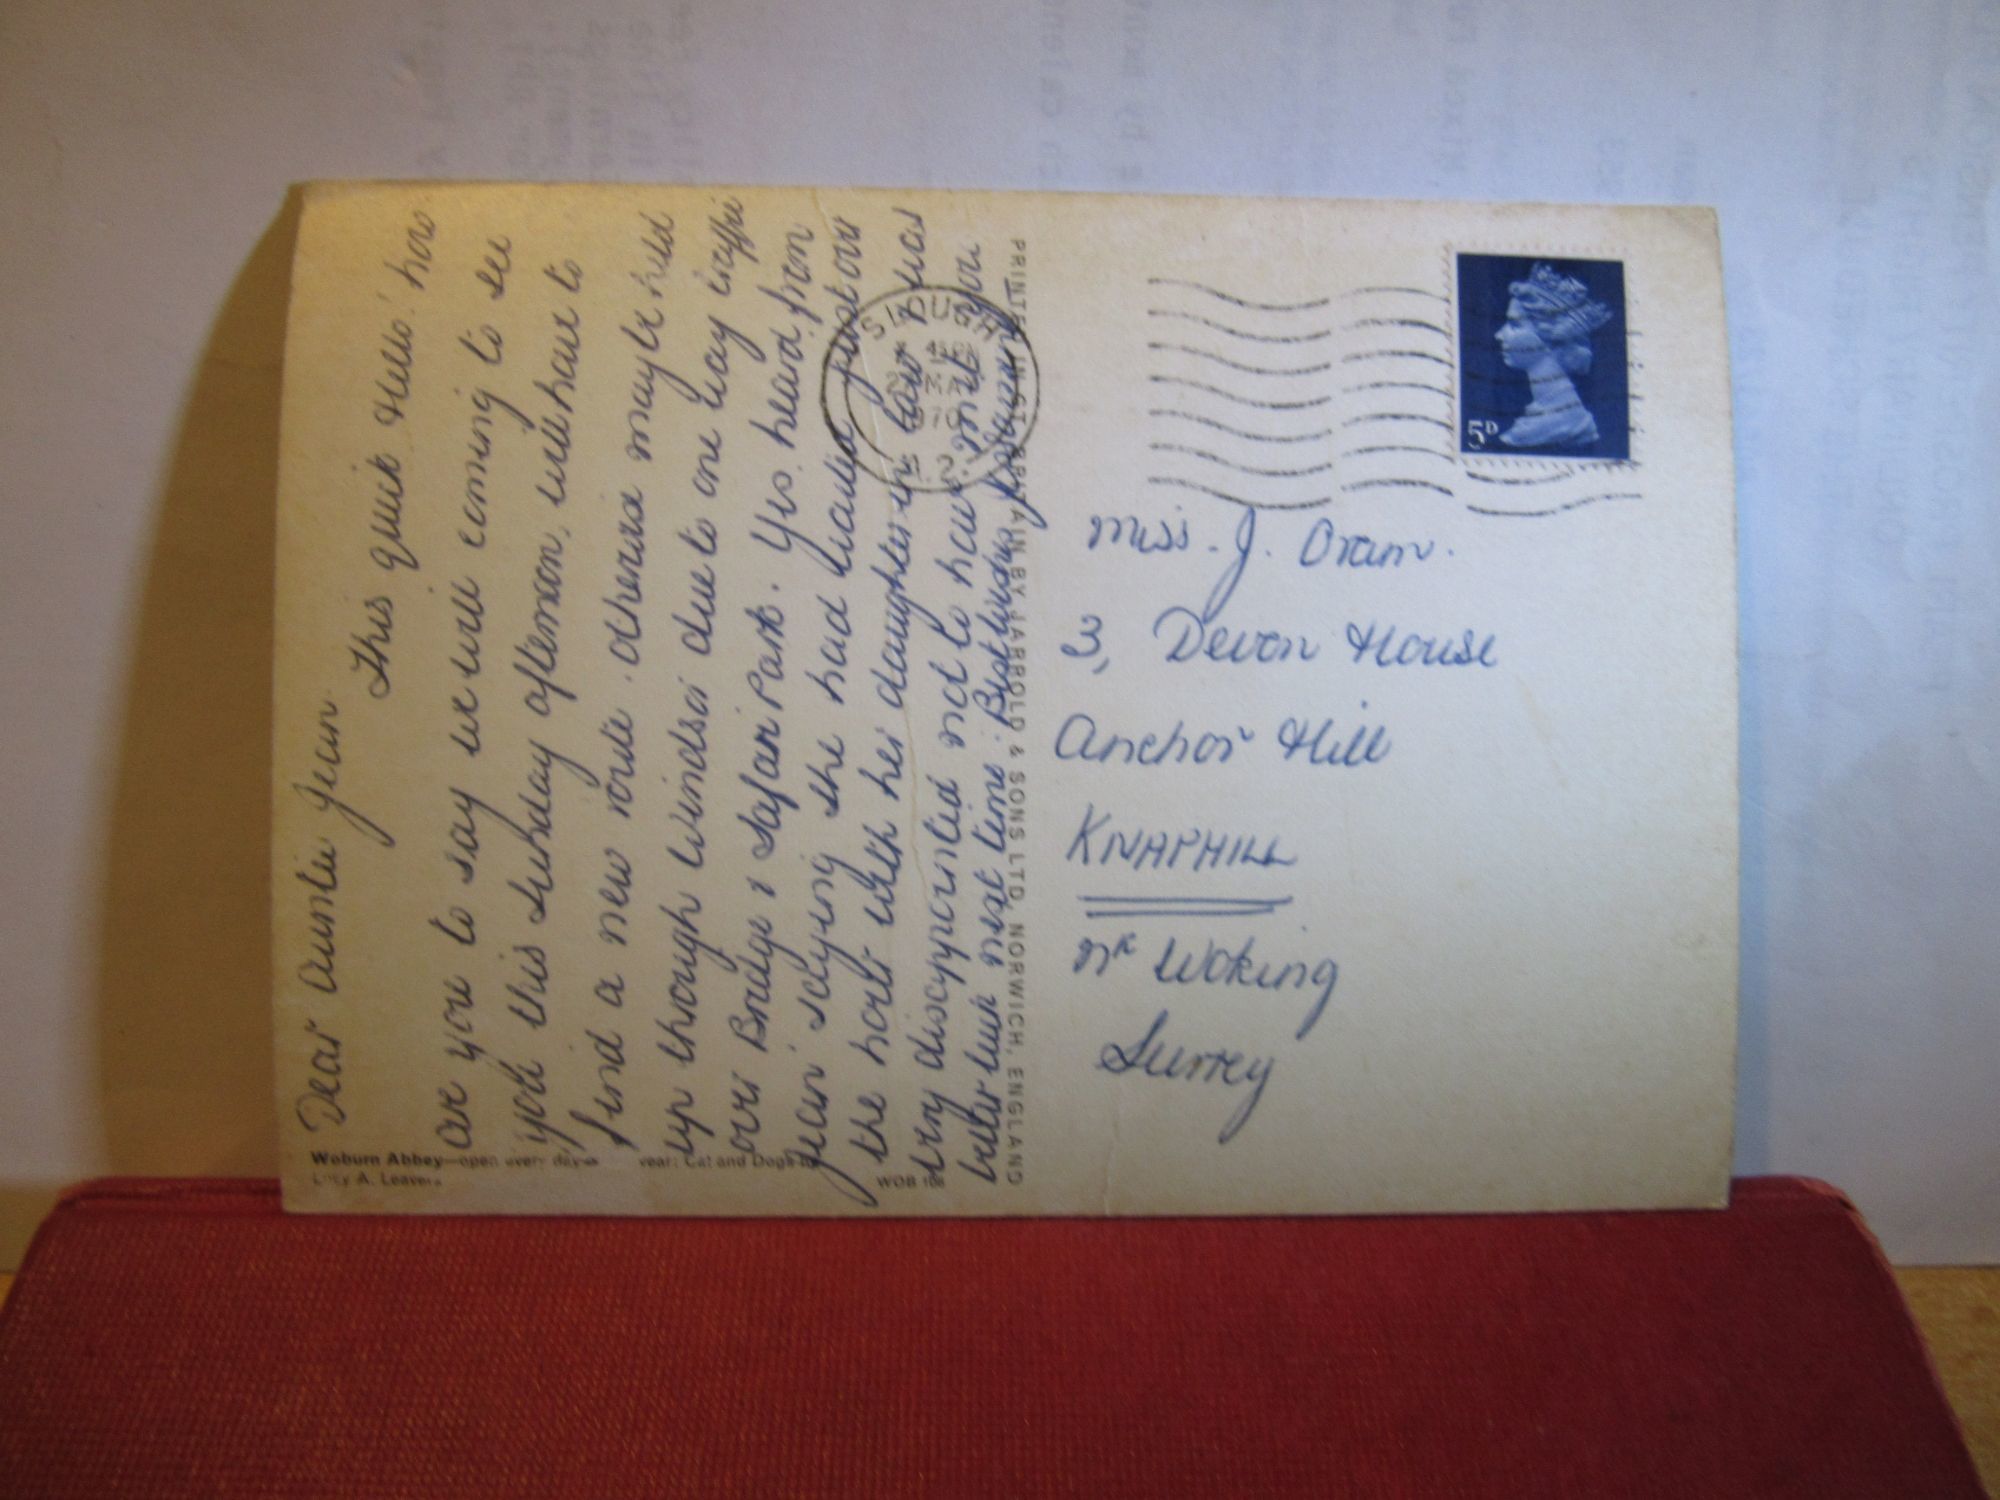 Dear Auntie Jean.
This quick Hello! how
are you to say we will coming to see
you this Sunday afternoon, will have to
find a new route. otherwise may be held
up through Windsor due to one way traffic
over Bridge & Safari Park. Yes heard from
Jean saying she had wasted just over
the hour with her daughter in law & was
very disappointed not to have met you
better luck next time. Best wishes
Woburn Abbey—open every day year: Cat and Dogs by
Lucy A. Leavers
WOB 108
PRINTED IN GT. BRITAIN BY JARROLD & SONS LTD, NORWICH, ENGLAND
SLOUGH
MAY
1970
5D
Miss. J. Oram.
3, Devon House
Anchor Hill
KNAPHILL
Nr Woking
Surrey